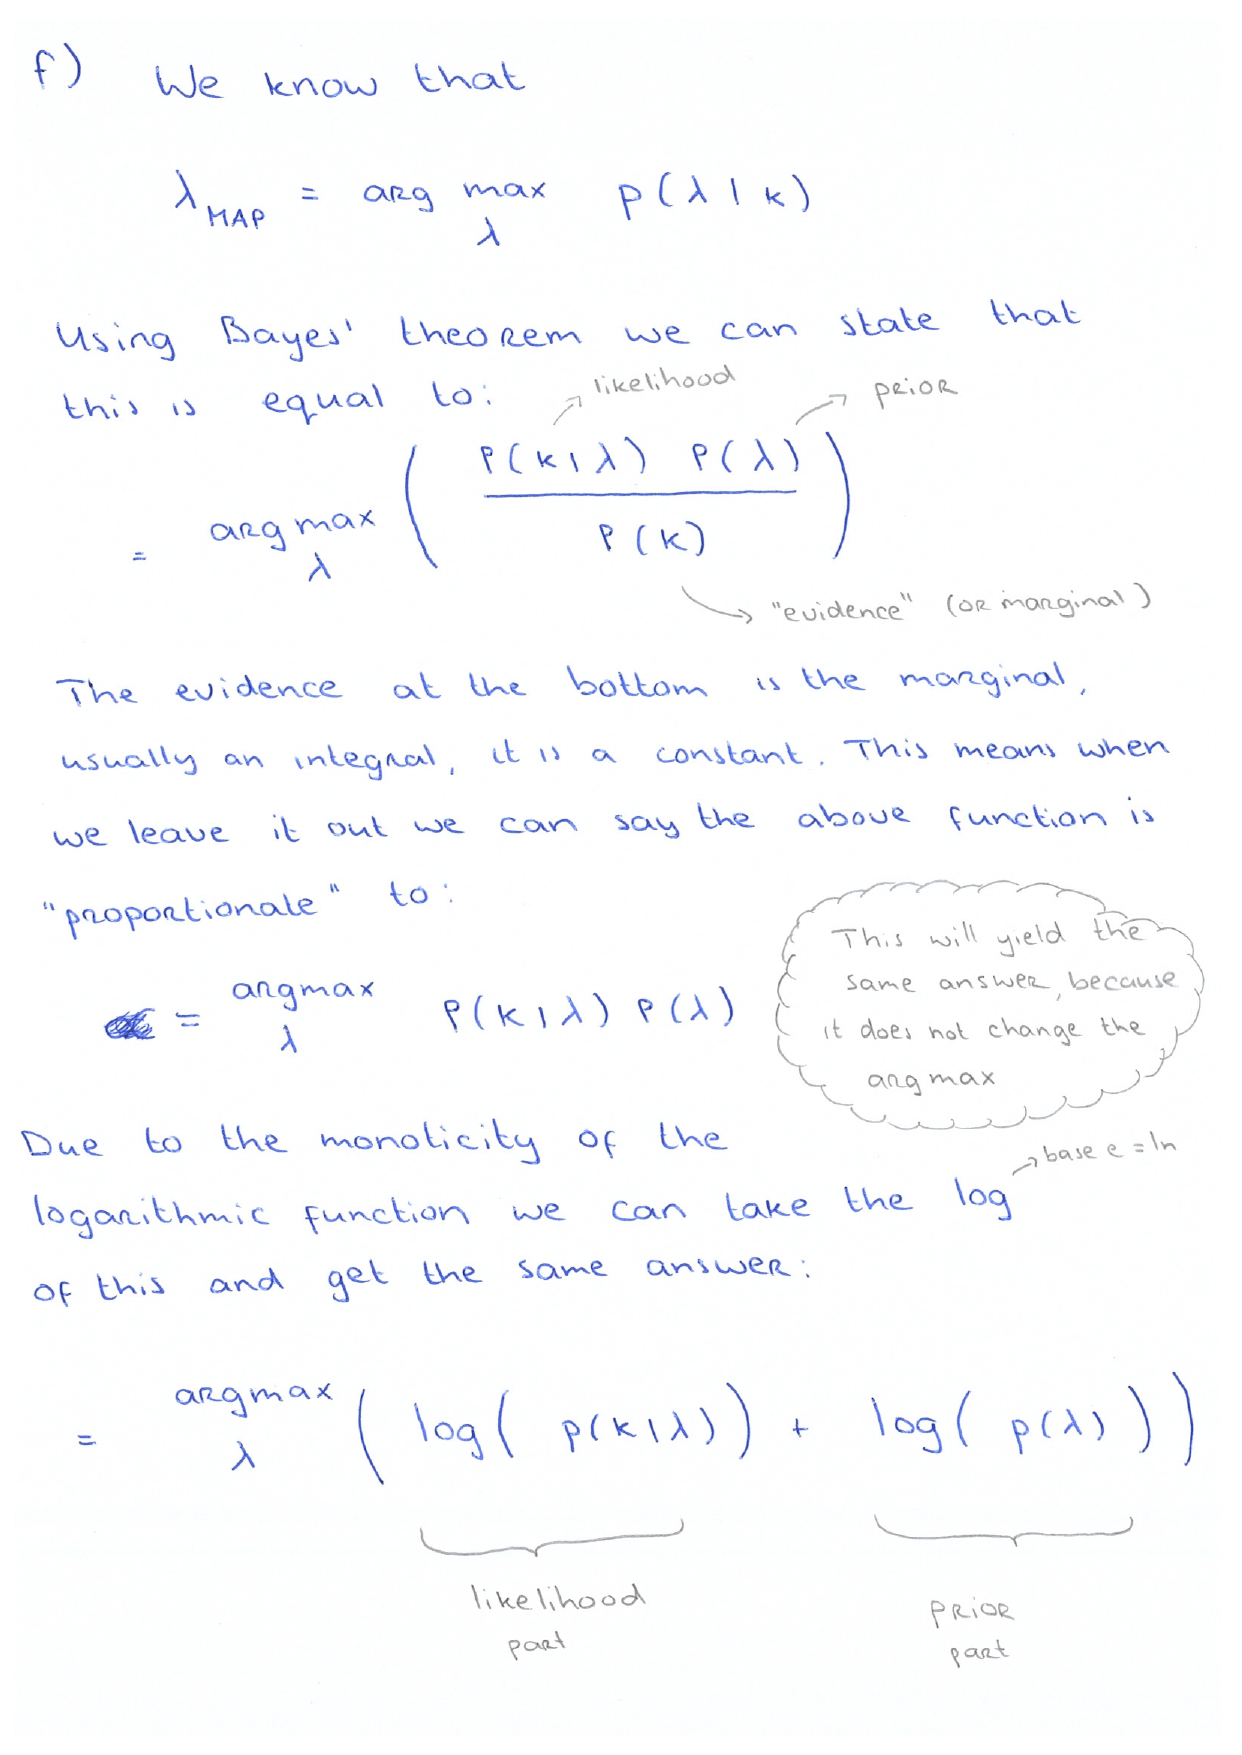 f) We know that
λ_MAP = arg max p(λ | k)
λ
Using Bayes' theorem we can state that
this is equal to: likelihood prior
= argmax ( P(k | λ) P(λ) / P(k) )
λ
"evidence" (or marginal)
The evidence at the bottom is the marginal,
usually an integral, it is a constant. This means when
we leave it out we can say the above function is
"proportionale" to:
= argmax P(k | λ) P(λ)
λ
This will yield the
same answer, because
it does not change the
argmax
Due to the monoticity of the
base e = ln
logarithmic function we can take the log
of this and get the same answer:
= argmax ( log( p(k | λ)) + log( p(λ) ) )
λ
likelihood
part
prior
part